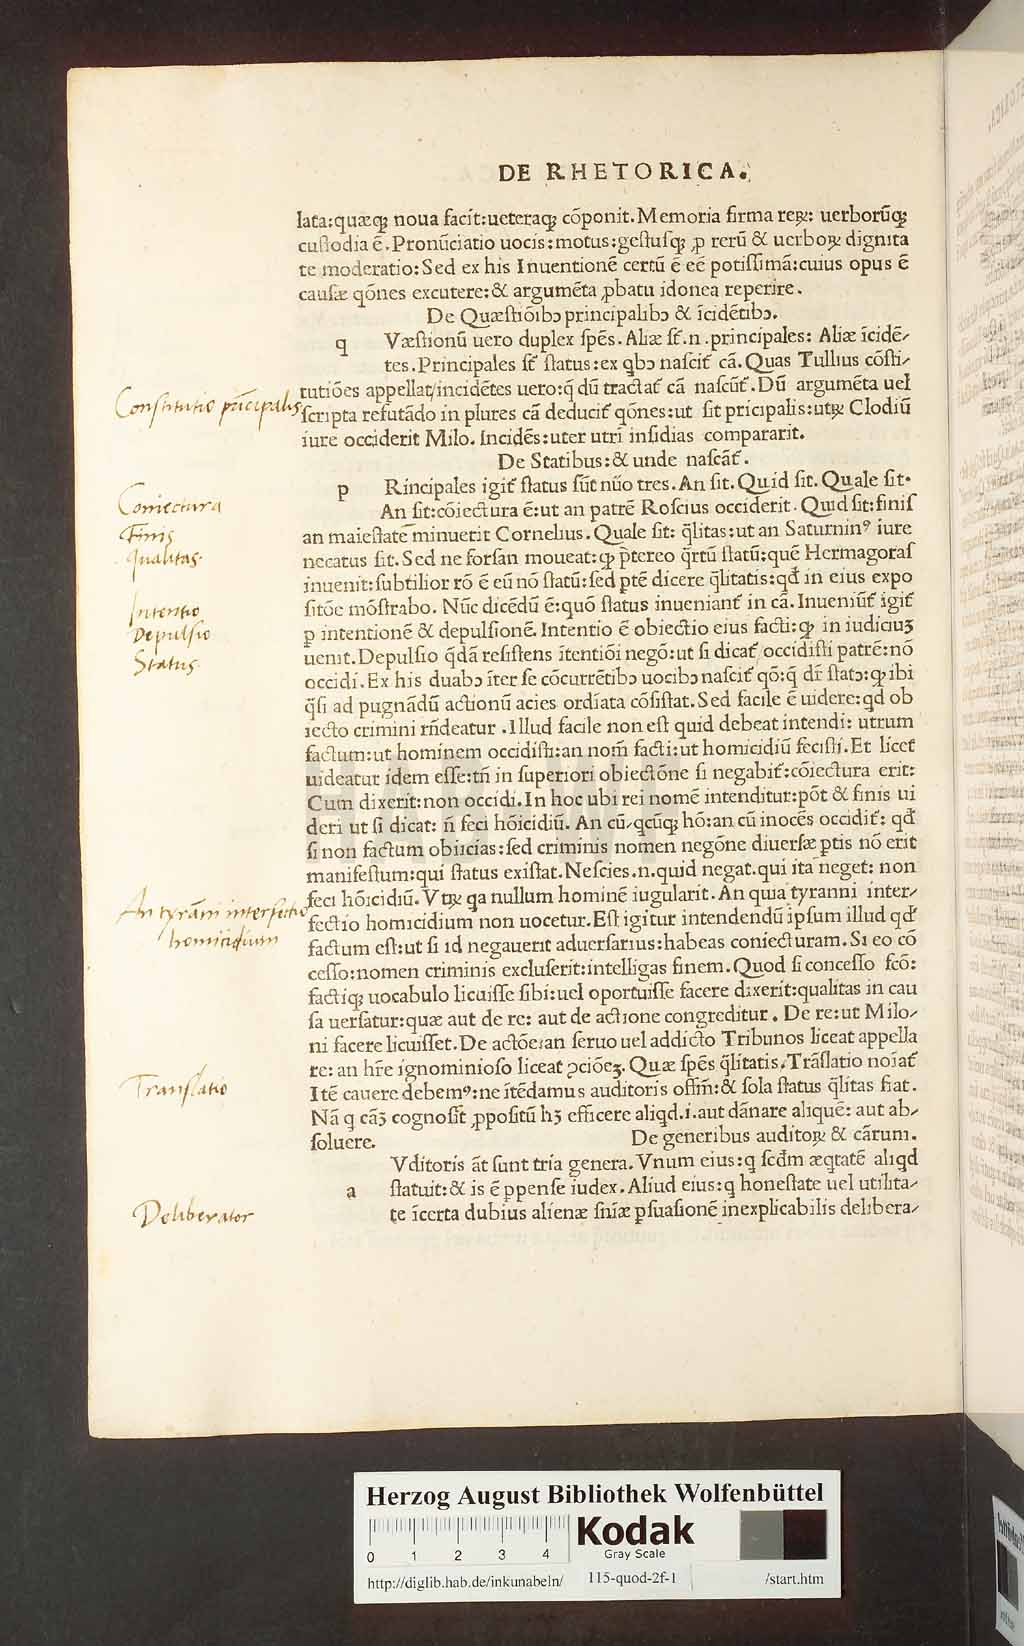 DE RHETORICA.
lata:quæq; noua facit:ueteraq; cõponit.Memoria firma reꝝ: uerborũq;
custodia ẽ.Pronũciatio uocis:motus:gestusq; ꝓ rerũ & uerboꝝ dignita
te moderatio:Sed ex his Inuentionẽ certũ ẽ eẽ potissimã:cuius opus ẽ
causæ qõnes excutere:& argumẽta ꝓbatu idonea reperire.
De Quæstiõibꝰ principalibꝰ & ĩcidẽtibꝰ.
q Væstionũ uero duplex spẽs.Aliæ st̃.n.principales: Aliæ ĩcidẽ-
tes.Principales st̃ status:ex qbꝰ nascit̃ cã.Quas Tullius cõsti-
Constitutio prĩcipalis
tutiões appellat/incidẽtes uero:q̃ dũ tractat̃ cã nascũt̃.Dũ argumẽta uel
scripta refutãdo in plures cã deducit̃ qõnes:ut sit pricipalis:utꝝ Clodiũ
iure occiderit Milo. Incidẽs:uter utri insidias compararit.
De Statibus:& unde nascãt̃.
p Rincipales igit̃ status sũt nũo tres.An sit.Quid sit.Quale sit.
Coniectura
An sit:cõiectura ẽ:ut an patrẽ Roscius occiderit.Quid sit:finis
Finis
an maiestatẽ minuerit Cornelius.Quale sit: q̃litas:ut an Saturninꝰ iure
Qualitas.
necatus sit.Sed ne forsan moueat:ꝙ p̃tereo q̃rtũ statũ:quẽ Hermagoras
inuenit:subtilior rõ ẽ eũ nõ statũ:sed ptẽ dicere q̃litatis:qđ in eius expo
Intentio
sitõe mõstrabo. Nũc dicẽdũ ẽ:quõ status inueniant̃ in cã.Inueniũt̃ igit̃
Depulsio
ꝑ intentionẽ & depulsionẽ.Intentio ẽ obiectio eius facti:ꝙ in iudiciuꝫ
Status.
uenit.Depulsio q̃dã resistens ĩtentiõi negõ:ut si dicat̃ occidisti patrẽ:nõ
occidi.Ex his duabꝰ ĩter se cõcurrẽtibꝰ uocibꝰ nascit̃ qõ:q̃ dr̃ statꝰ:ꝙ ibi
q̃si ad pugnãdũ actionũ acies ordĩata cõsistat.Sed facile ẽ uidere:qd ob
iecto crimini rñdeatur .Illud facile non est quid debeat intendi: utrum
factum:ut hominem occidisti:an nom̃ facti:ut homicidiũ fecisti.Et licet
uideatur idem esse:tñ in superiori obiectõne si negabit̃:cõiectura erit:
Cum dixerit:non occidi.In hoc ubi rei nomẽ intenditur:põt & finis ui
deri ut si dicat: ñ feci hõicidiũ. An cũ/qcũq; hõ:an cũ inocẽs occidit̃: qđ
si non factum obiicias:sed criminis nomen negõne diuersæ ꝑtis nõ erit
manifestum:qui status existat.Nescies.n.quid negat.qui ita neget: non
An tyrãni interfectio
feci hõicidiũ. Vtꝝ qa nullum hominẽ iugularit.An quia tyranni inter-
fectio homicidium non uocetur.Est igitur intendendũ ipsum illud qđ
homicidium
factum est:ut si id negauerit aduersarius:habeas coniecturam.Si eo cõ
cesso:nomen criminis excluserit:intelligas finem.Quod si concesso fcõ:
factiq; uocabulo licuisse sibi:uel oportuisse facere dixerit:qualitas in cau
sa uersatur:quæ aut de re: aut de actione congreditur. De re:ut Milo-
ni facere licuisset.De actõe:an seruo uel addicto Tribunos liceat appella
re: an hr̃e ignominioso liceat ꝯciõeꝫ. Quæ spẽs q̃litatis.Trãslatio noiat̃
Translatio
Itẽ cauere debemꝰ:ne ĩtẽdamus auditoris offim̃:& sola status q̃litas fiat.
Nã q cãꝫ cognosĩt ꝓpositũ hꝫ efficere aliqd.i.aut dãnare aliquẽ: aut ab-
soluere. De generibus auditoꝝ & cãrum.
a Vditoris ãt sunt tria genera.Vnum eius:q scđm æqtatẽ aliqd
statuit:& is ẽ ꝓpense iudex.Aliud eius:q honestate uel utilita-
Deliberator
te ĩcerta dubius alienæ sñiæ ꝑsuasionẽ inexplicabilis delibera-
Herzog August Bibliothek Wolfenbüttel
0 1 2 3 4
Kodak
Gray Scale
http://diglib.hab.de/inkunabeln/ 115-quod-2f-1 /start.htm